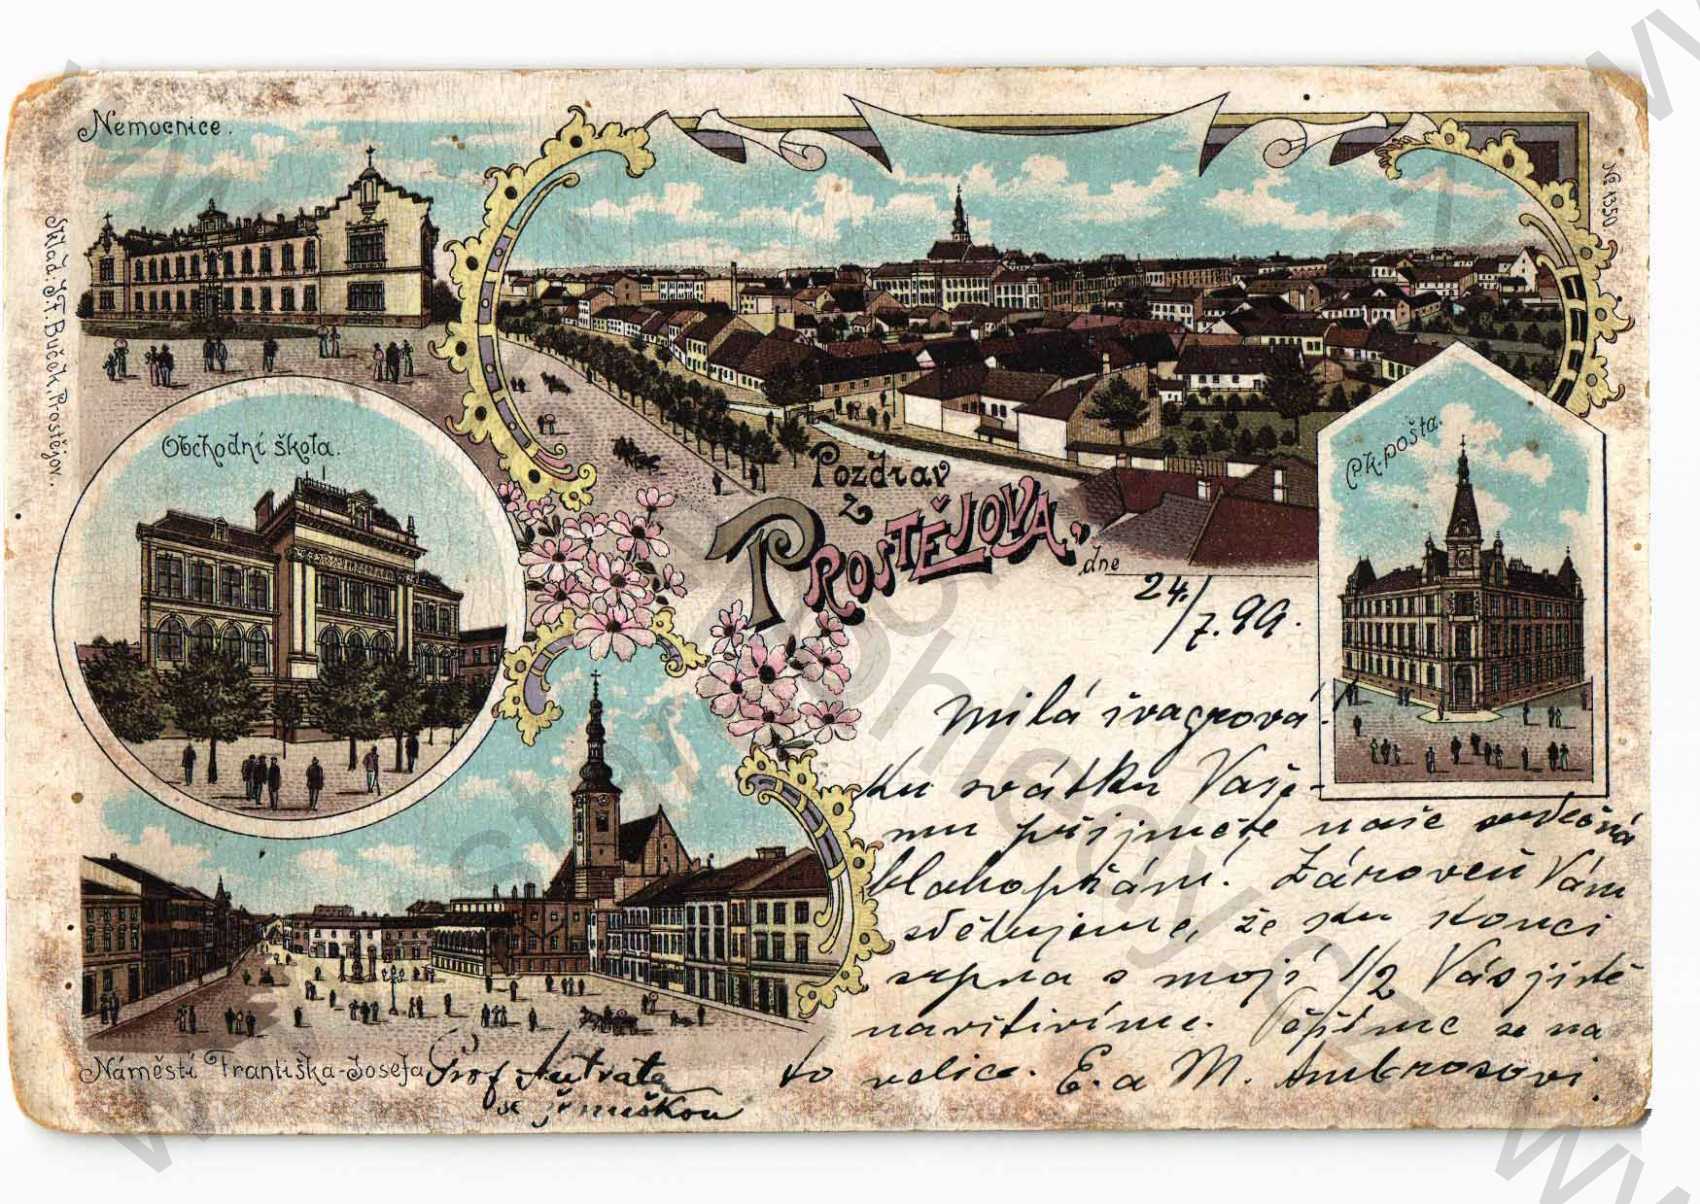 Nemocnice.
Sklad: J.F. Buček, Prostějov.
№ 1350
Obchodní škola.
Pozdrav
z
PROSTĚJOVA,
dne
24./7. 99.
ck. pošta.
Milá švagrová!
Ku svátku Vaše-
mu přijměte naše srdečná
blahopřání. Zároveň Vám
sdělujeme, že ku konci
srpna s mojí 1/2 Vás jistě
navštívíme. Těšíme se na
to velice. E. a M. Ambrosovi
Náměstí Františka-Josefa
Prof.
se
www.stare-pohledy.cz